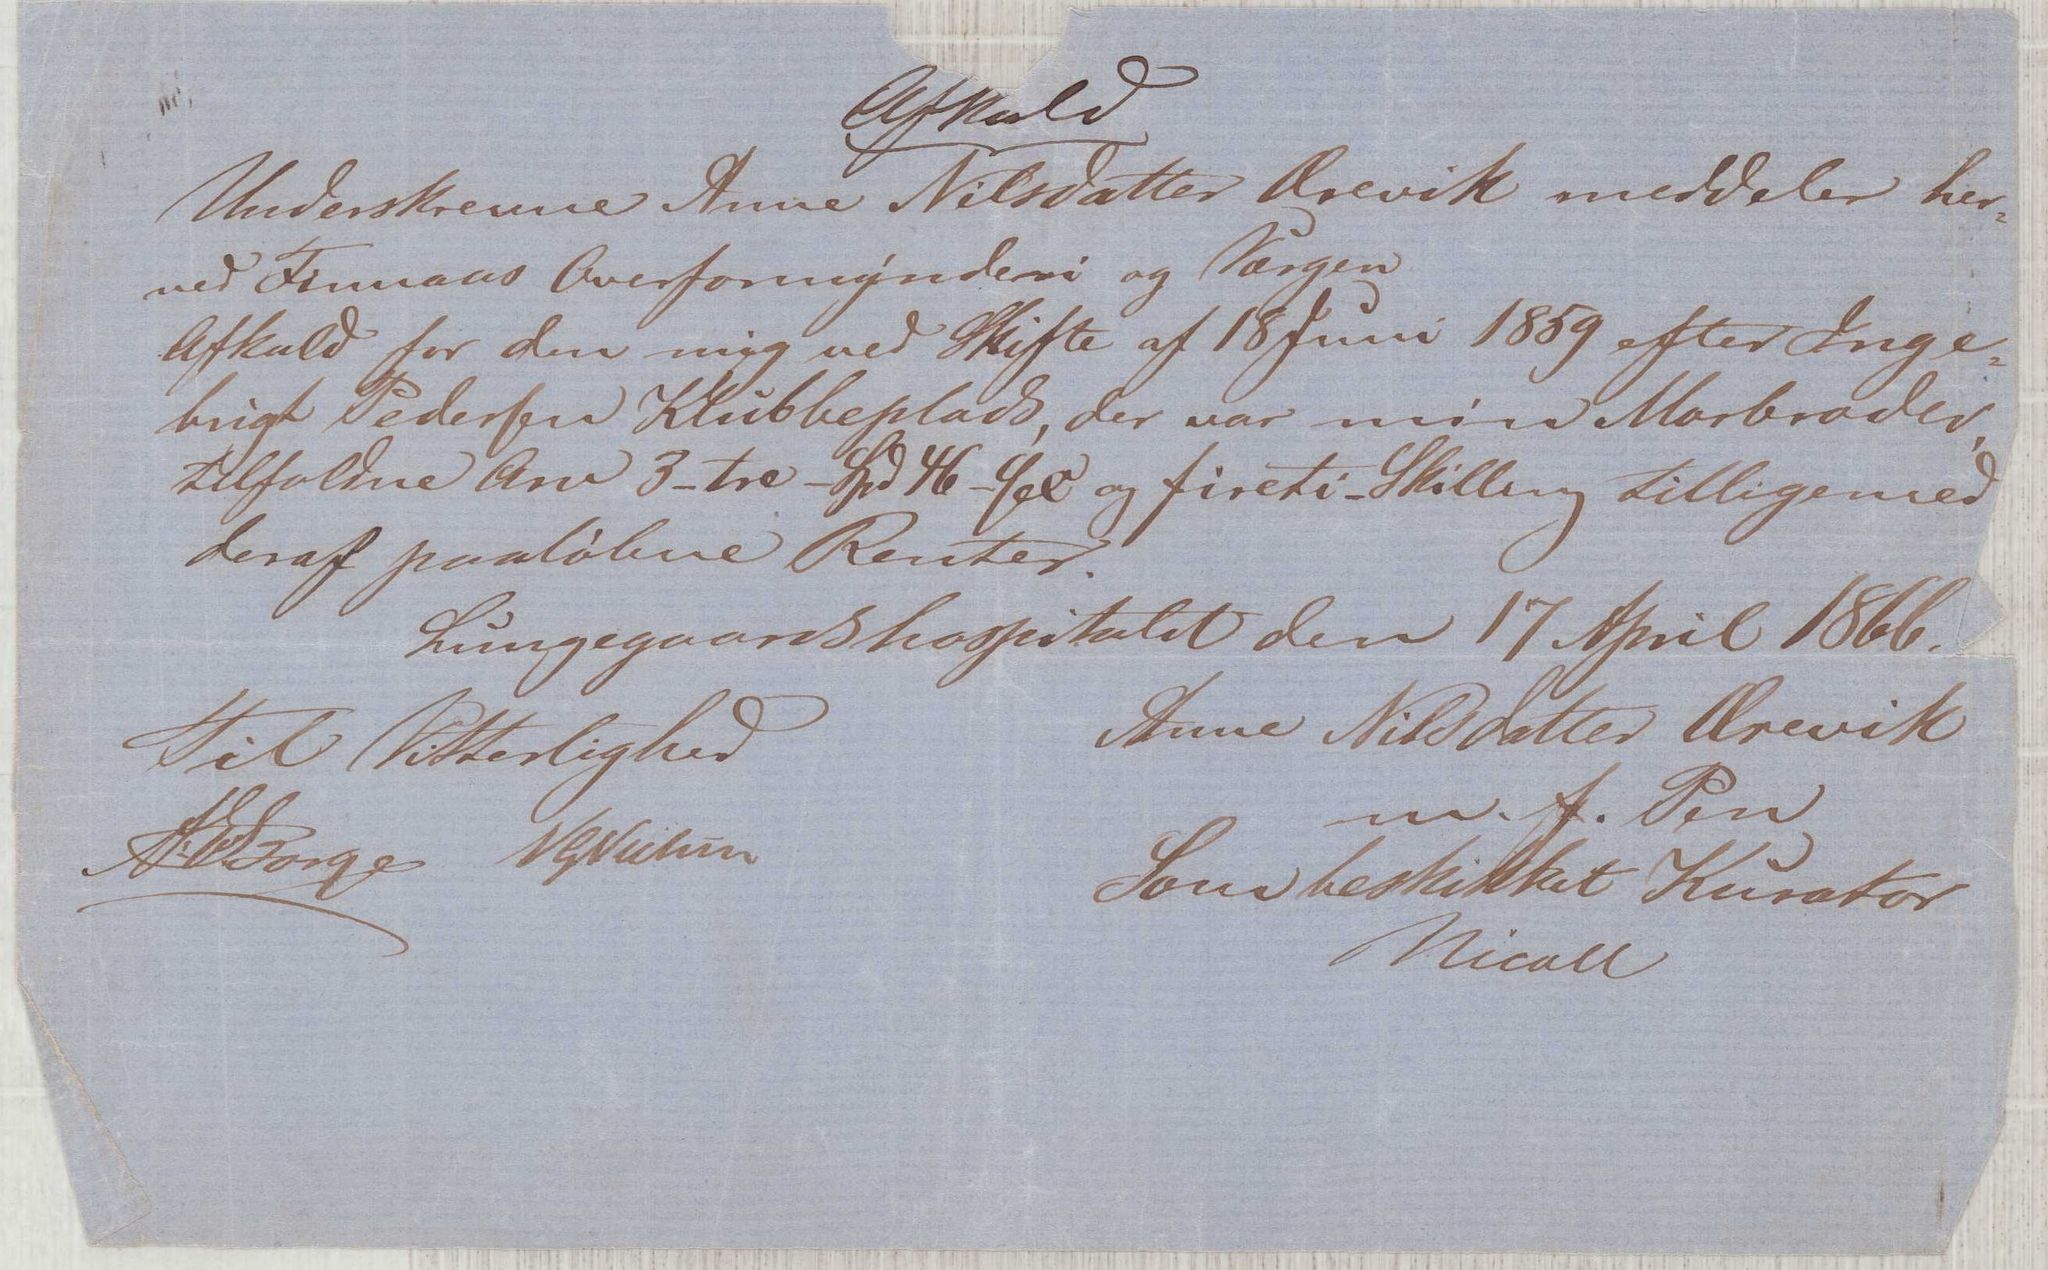 Afkald
Underskrevne Anne Nilsdatter Ørevik meddeler her-
ved Finnaas Overformynderi og Værgen
Afkald for den mig ved Skifte af 18 Juni 1859 efter Inge-
brigt Pedersen Klubbeplads, der var min Morbroder,
tilfaldne Arv 3 - tre - Spd 46 - sex og fireti - Skilling tilligemed
deraf paaløbne Renter.
Lungegaardshospitalet den 17 April 1866.
Til Vitterlighed
Anne Nilsdatter Ørevik
m. f. Pen
Som beskikket Kurator
Nicoll